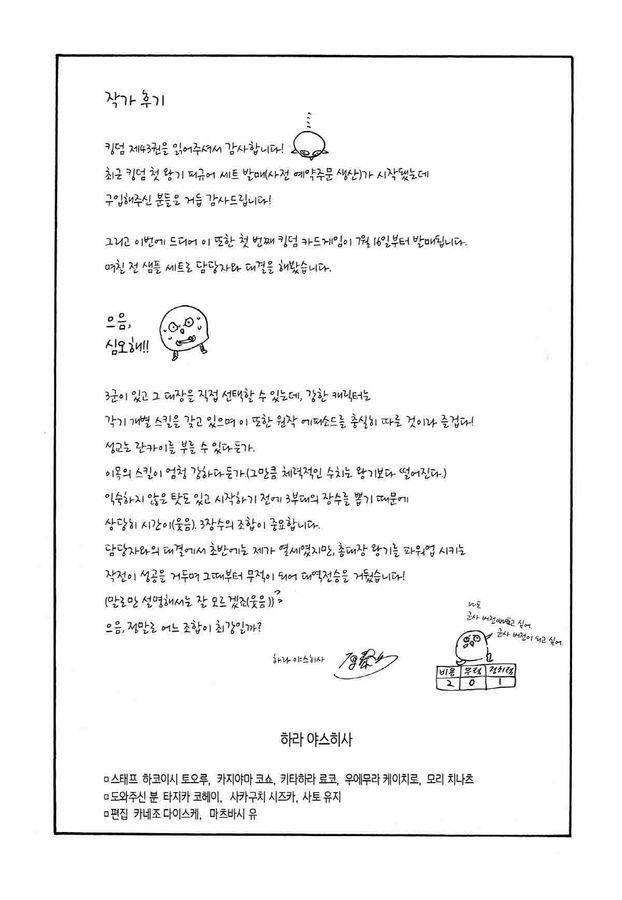 작가 후기
킹덤 제43권을 읽어주셔서 감사합니다!
최근 킹덤 첫 왕기 피규어 세트 발매(사전 예약주문 생산)가 시작됐는데
구입해주신 분들은 거듭 감사드립니다!
그리고 이번에 드디어 이 또한 첫 번째 킹덤 카드게임이 7월 16일부터 발매됩니다.
며칠 전 샘플 세트로 담당자와 대결을 해봤습니다.
으음,
심오해!!
3군이 있고 그 대장을 직접 선택할 수 있는데, 강한 캐릭터는
각기 개별 스킬을 갖고 있으며 이 또한 원작 에피소드를 충실히 따른 것이라 즐겁다!
성교는 란카이를 부를 수 있다든가.
이목의 스킬이 엄청 강하다든가.(그만큼 체력적인 수치는 왕기보다 떨어진다.)
익숙하지 않은 탓도 있고 시작하기 전에 3부대의 장수를 뽑기 때문에
상당히 시간이(웃음). 3장수의 조합이 중요합니다.
담당자와의 대결에서 초반에는 제가 열세였지만, 총대장 왕기를 파워업 시키는
작전이 성공을 거두며 그때부터 무적이 되어 대역전승을 거뒀습니다!
(말로만 설명해서는 잘 모르겠죠(웃음))
으음, 정말로 어느 조합이 최강일까?
나도
군사 버전이 되고 싶어.
비용 무력
2 0 1
하라 야스히사
하라 야스히사
□스태프 하코이시 토오루, 카지야마 코쇼, 키타하라 료코, 우에무라 케이치로, 모리 치나츠
□도와주신 분 타지카 코헤이, 사카구치 시즈카, 사토 유지
□편집 카네조 다이스케, 마츠바시 유